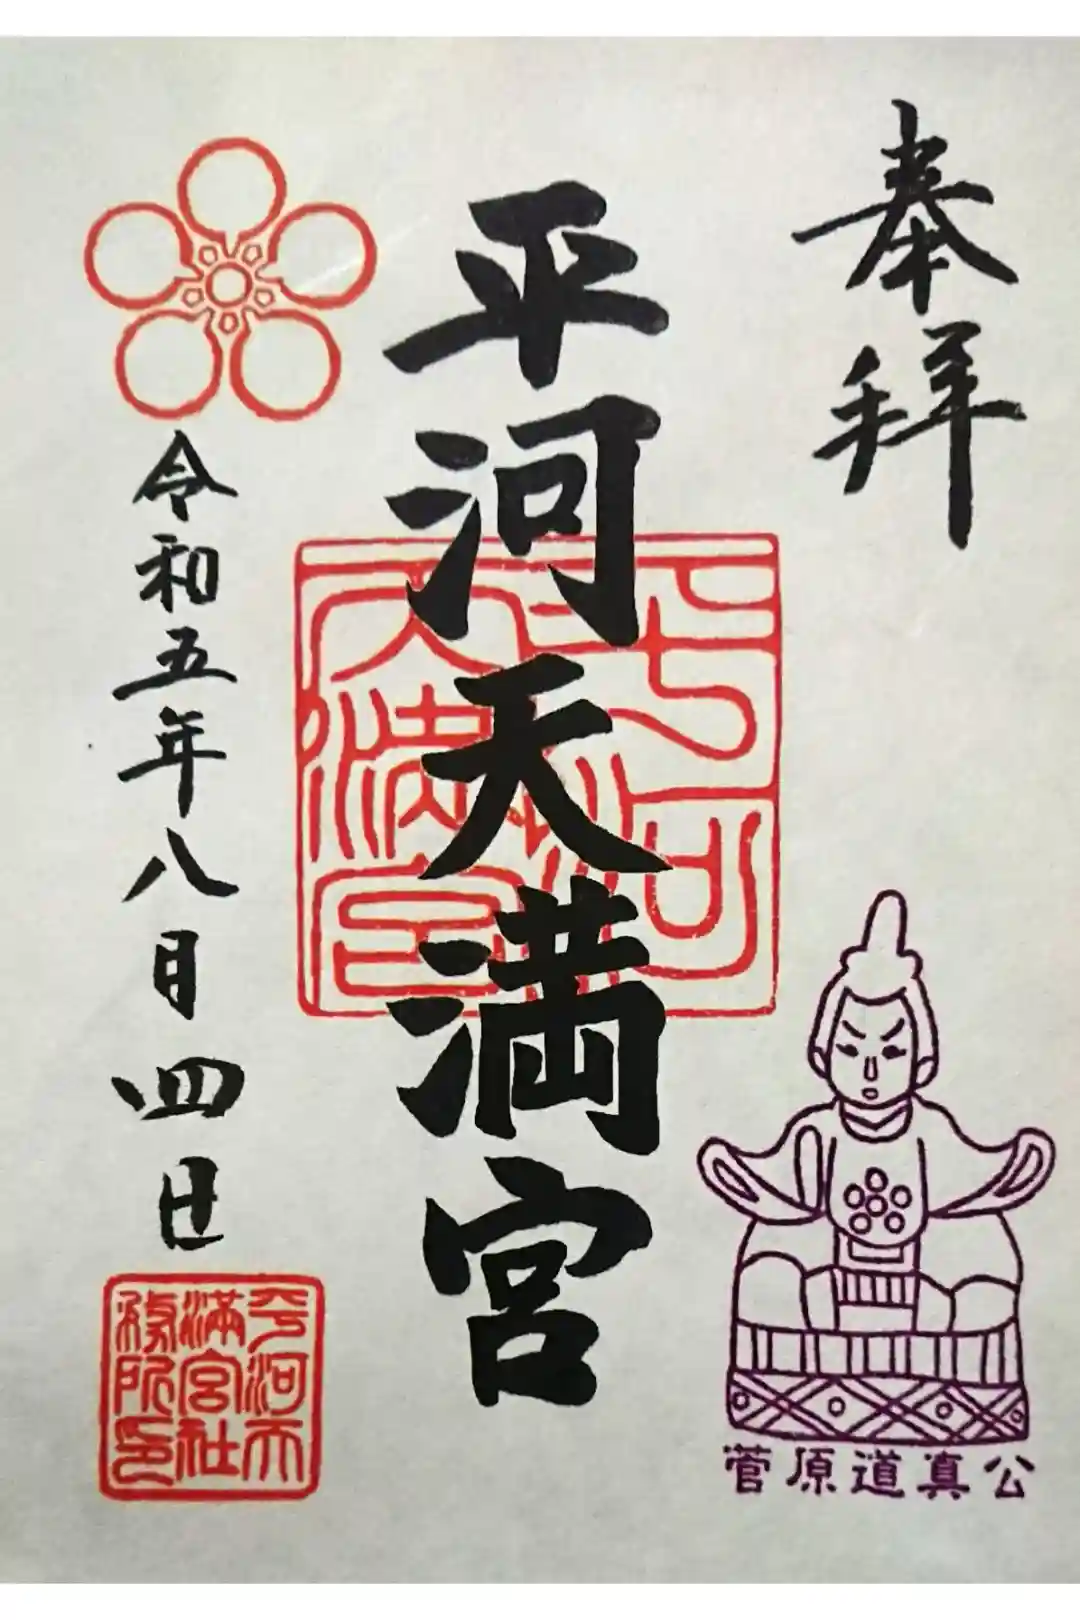 奉拝
平河天満宮
平河天満宮
令和五年八月四日
平河天満宮社務所印
菅原道真公